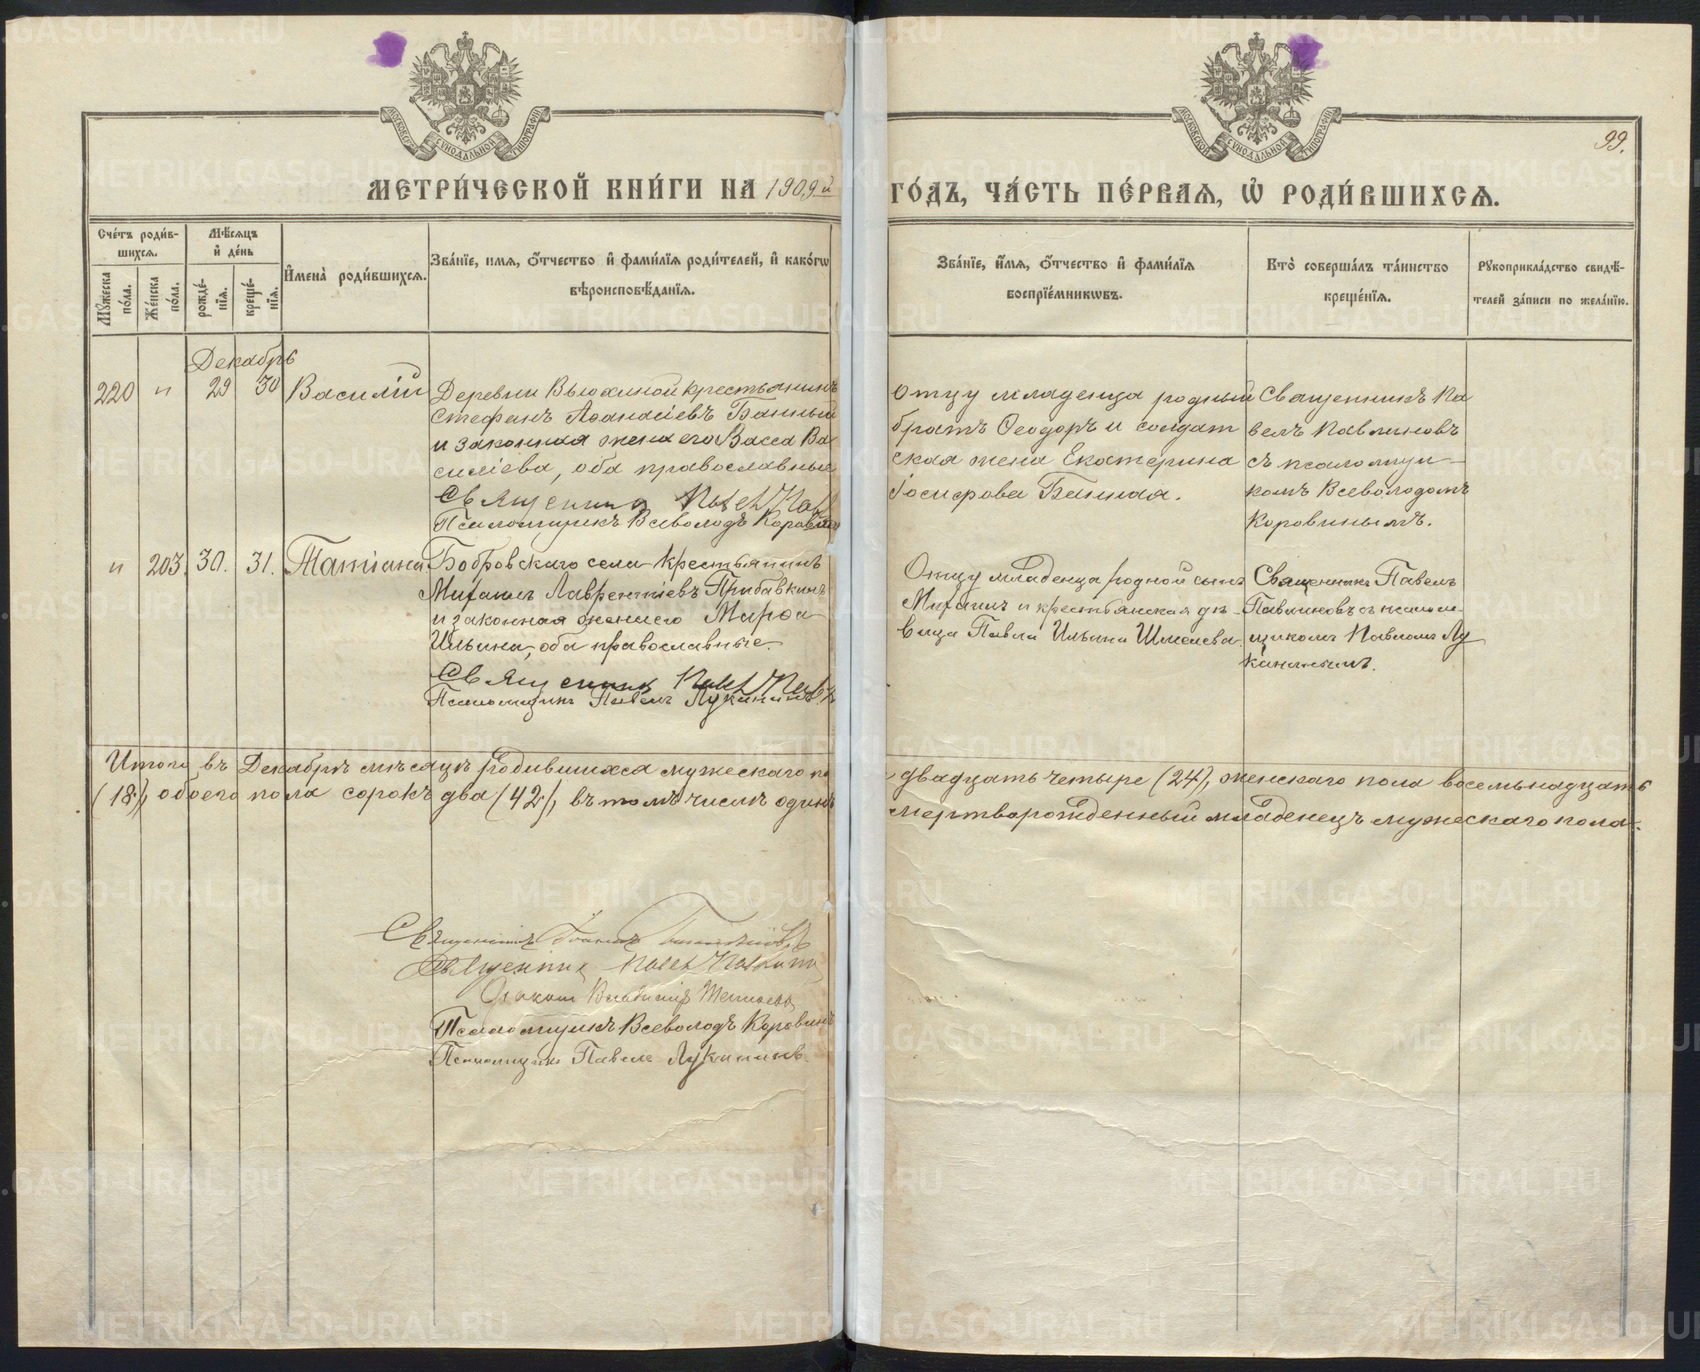 МОСКОВСКОЙ СΥНОДАЛЬНОЙ ТИПОГРАФІИ
МОСКОВСКОЙ СΥНОДАЛЬНОЙ ТИПОГРАФІИ
99.
МЕТРИ́ЧЕСКОЙ КНИ́ГИ НА 1909й
ГО́ДЪ, ЧА́СТЬ ПЕ́РВАѦ, Ѡ҆ РОДИ́ВШИХСѦ.
Сче́тъ роди́в-
шихсѧ.
Мѣ́сѧцъ
и҆ де́нь
Мꙋ́жеска
по́ла.
Же́нска
по́ла.
рожде́-
нїѧ.
креще́-
нїѧ.
И҆мена̀ роди́вшихсѧ.
Зва́нїе, имѧ, ѻ҆́тчество и҆ фами́лїѧ роди́телей, и҆ како́гѡ
вѣроисповѣ́данїѧ.
Зва́нїе, и҆́мѧ, ѻ҆́тчество и҆ фами́лїѧ
воспрїе́мникѡвъ.
Кто̀ соверша́лъ та́инство
креще́нїѧ.
Рꙋкоприкла́дство свидѣ́-
телей за́писи по жела́нїю.
Декабрь
220 " 29 30 Василій
Деревни Вьюхиной крестьянинъ
Стефанъ Аѳанасіевъ Банный
и законная жена его Васса Ва-
силіева, оба православные
Священник Павел Павл
Псаломщикъ Всеволодъ Коровин
Отцу младенца родный
братъ Ѳеодоръ и солдат
ская жена Екатерина
Іосифова Банная.
Священникъ Па
велъ Павлиновъ
съ псаломщи-
комъ Всеволодомъ
Коровинымъ.
" 203. 30. 31. Татіана
Бобровскаго села крестьянинъ
Михаилъ Лаврентіевъ Прибавкинъ
и законная жена его Марѳа
Ильина, оба православные.
Священник Павел Павл
Псаломщикъ Павелъ Лукининъ
Отцу младенца родной сынъ
Михаилъ и крестьянская дѣ-
вица Павла Ильина Шмелева
Священникъ Павелъ
Павлиновъ съ псалом-
щикомъ Павломъ Лу
кинымъ.
Итого въ Декабрѣ мѣсяцѣ родившихся мужескаго по
двадцать четыре (24), женскаго пола восемьнадцать
(18), обоего пола сорокъ два (42), въ томъ числѣ одинъ
мертворожденный младенецъ мужескаго пола.
Священникъ Іоаннъ
Священник Павел Павлинов
Діаконъ Владиміръ
Псаломщикъ Всеволодъ Коровинъ
Псаломщикъ Павелъ Лукининъ.
METRIKI.GASO-URAL.RU